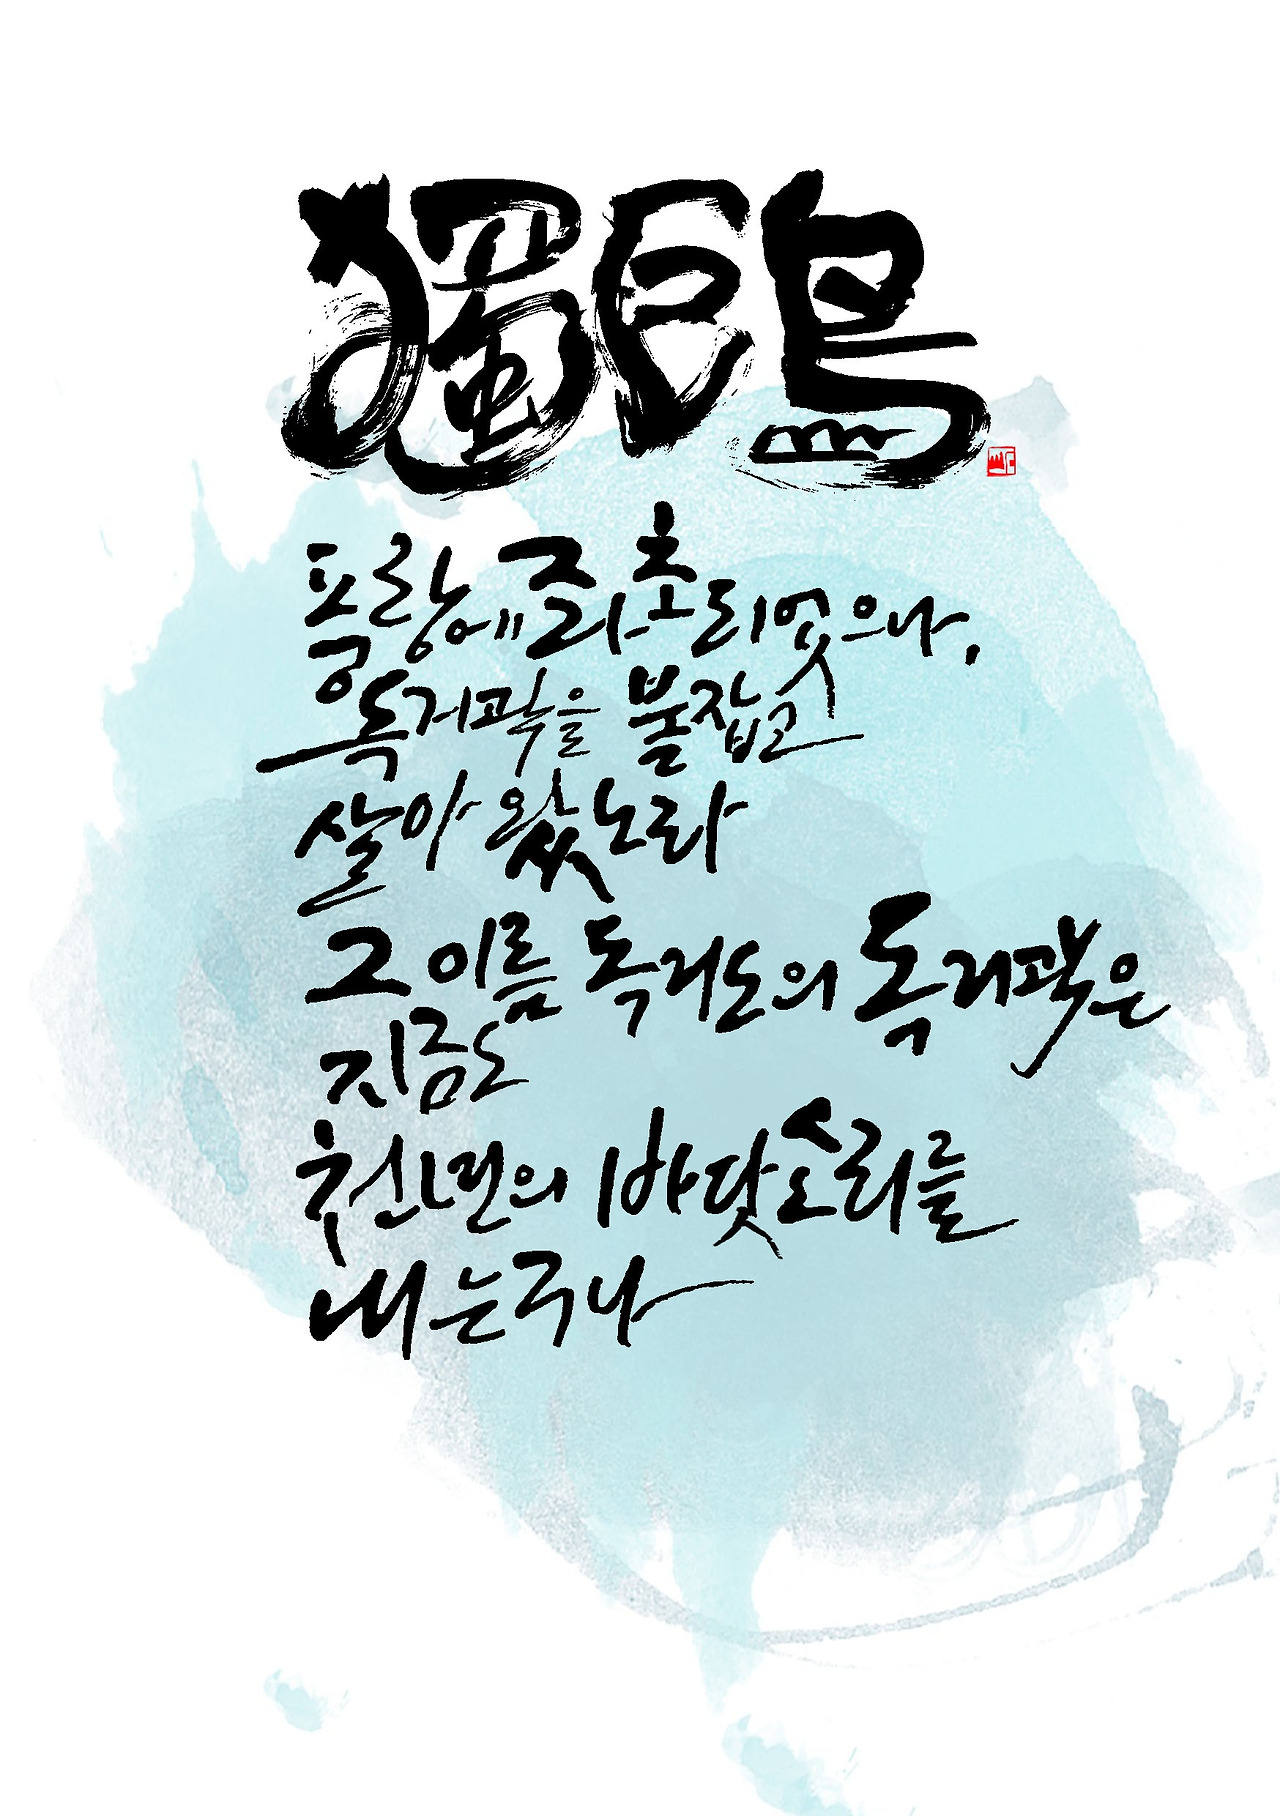 獨巨島
풍랑에 좌초되었으나,
독거곽을 붙잡고
살아 왔노라
그 이름 독거도의 독거곽은
지금도
천년의 바닷소리를
내는구나